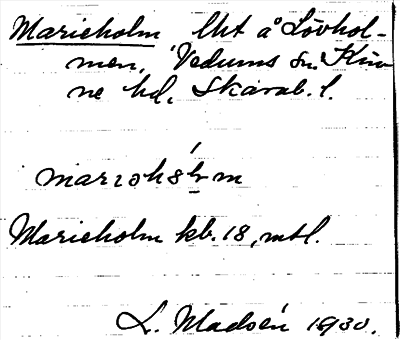 Marieholm lht å Lövhol-
men, Vedums sn. Kin
ne hd. Skarab. l.
Marieholm kb. 18, mtl.
L. Madsén 1930.